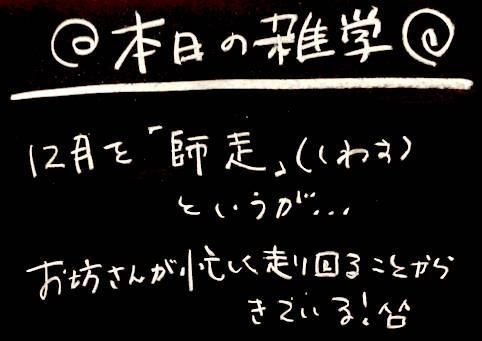 @本日の雑学@
12月を「師走」(しわす)
というが…
お坊さんが忙しく走り回ることから
きている!